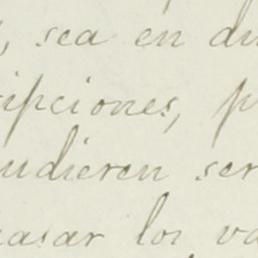 , sea en di
ipciones, p
udieren ser
asar los va